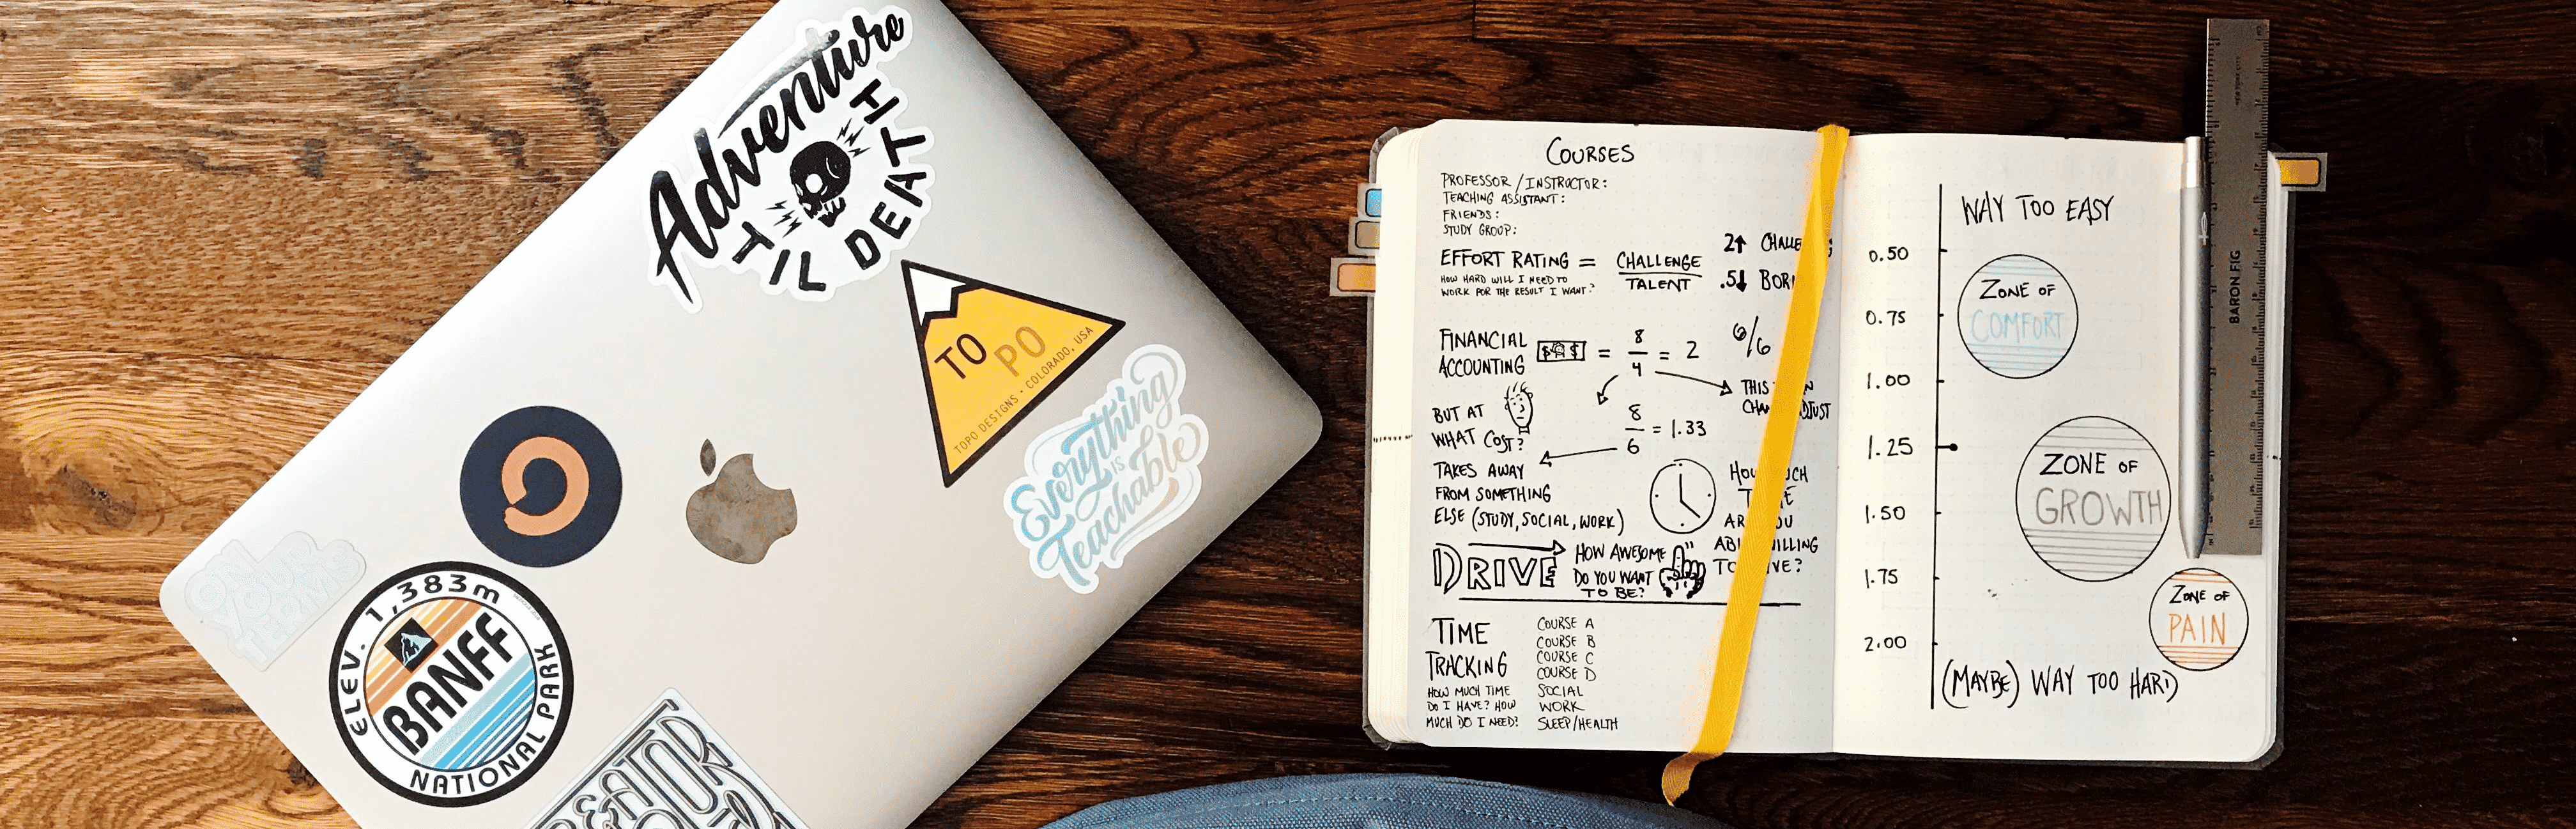 Adventure
TIL DEATH
TO PO
TOPO DESIGNS · COLORADO, USA
Everything
IS
Teachable
ON
YOUR
TERMS
ELEV. 1,383m
BANFF
NATIONAL PARK
COURSES
PROFESSOR / INSTRUCTOR:
TEACHING ASSISTANT:
FRIENDS:
STUDY GROUP:
EFFORT RATING = CHALLENGE / TALENT
HOW HARD WILL I NEED TO
WORK FOR THE RESULT I WANT?
2↑
.5↓
FINANCIAL
ACCOUNTING
$ $ = 8/4 = 2
6/6
BUT AT
WHAT COST?
8/6 = 1.33
THIS
TAKES AWAY
FROM SOMETHING
ELSE (STUDY, SOCIAL, WORK)
DRIVE
HOW AWESOME
DO YOU WANT
TO BE?
TIME
TRACKING
HOW MUCH TIME
DO I HAVE? HOW
MUCH DO I NEED?
COURSE A
COURSE B
COURSE C
COURSE D
SOCIAL
WORK
SLEEP/HEALTH
WAY TOO EASY
0.50
ZONE OF
COMFORT
0.75
1.00
1.25
ZONE OF
GROWTH
1.50
1.75
ZONE OF
PAIN
2.00
(MAYBE) WAY TOO HARD
BARON FIG